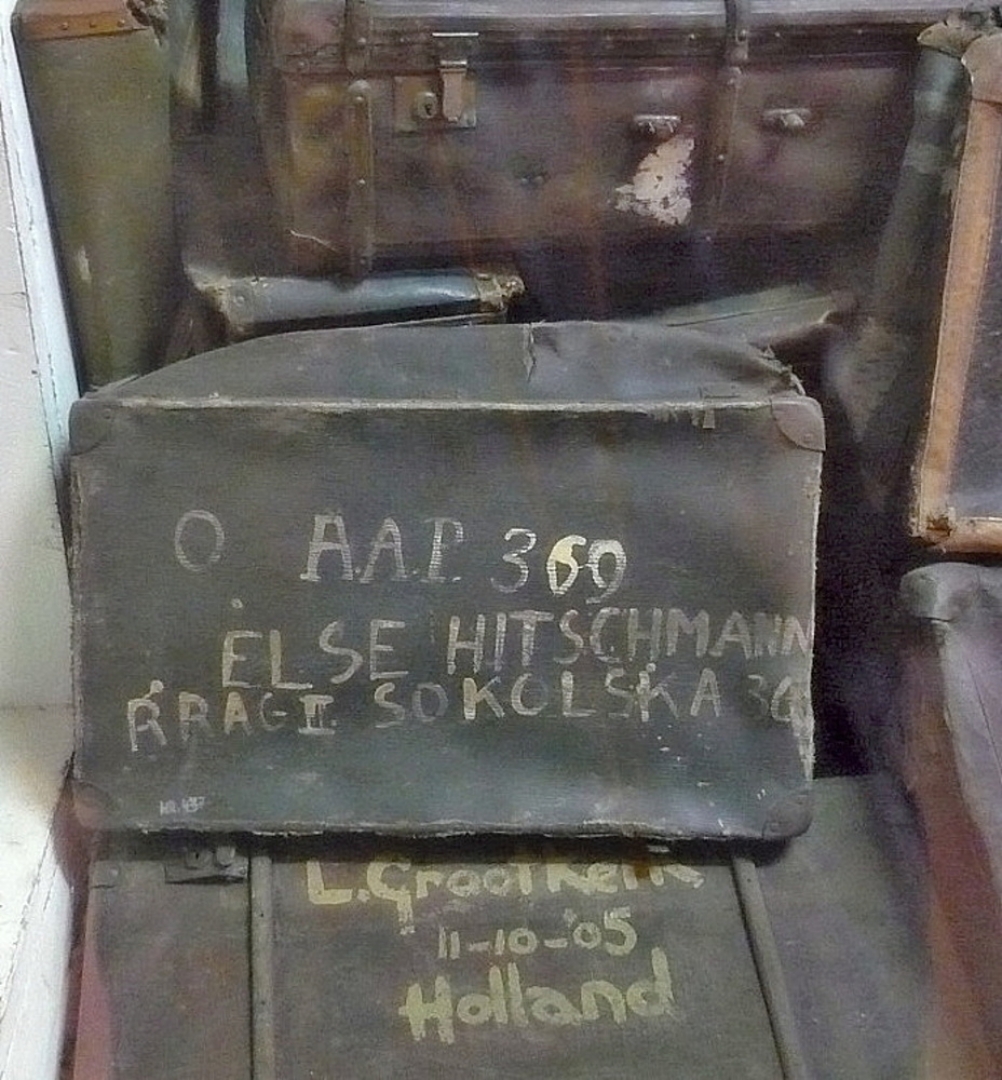 O A.A.P. 369
ELSE HITSCHMANN
PRAG II. SOKOLSKA 36
L. Grootkerk
11-10-'05
Holland